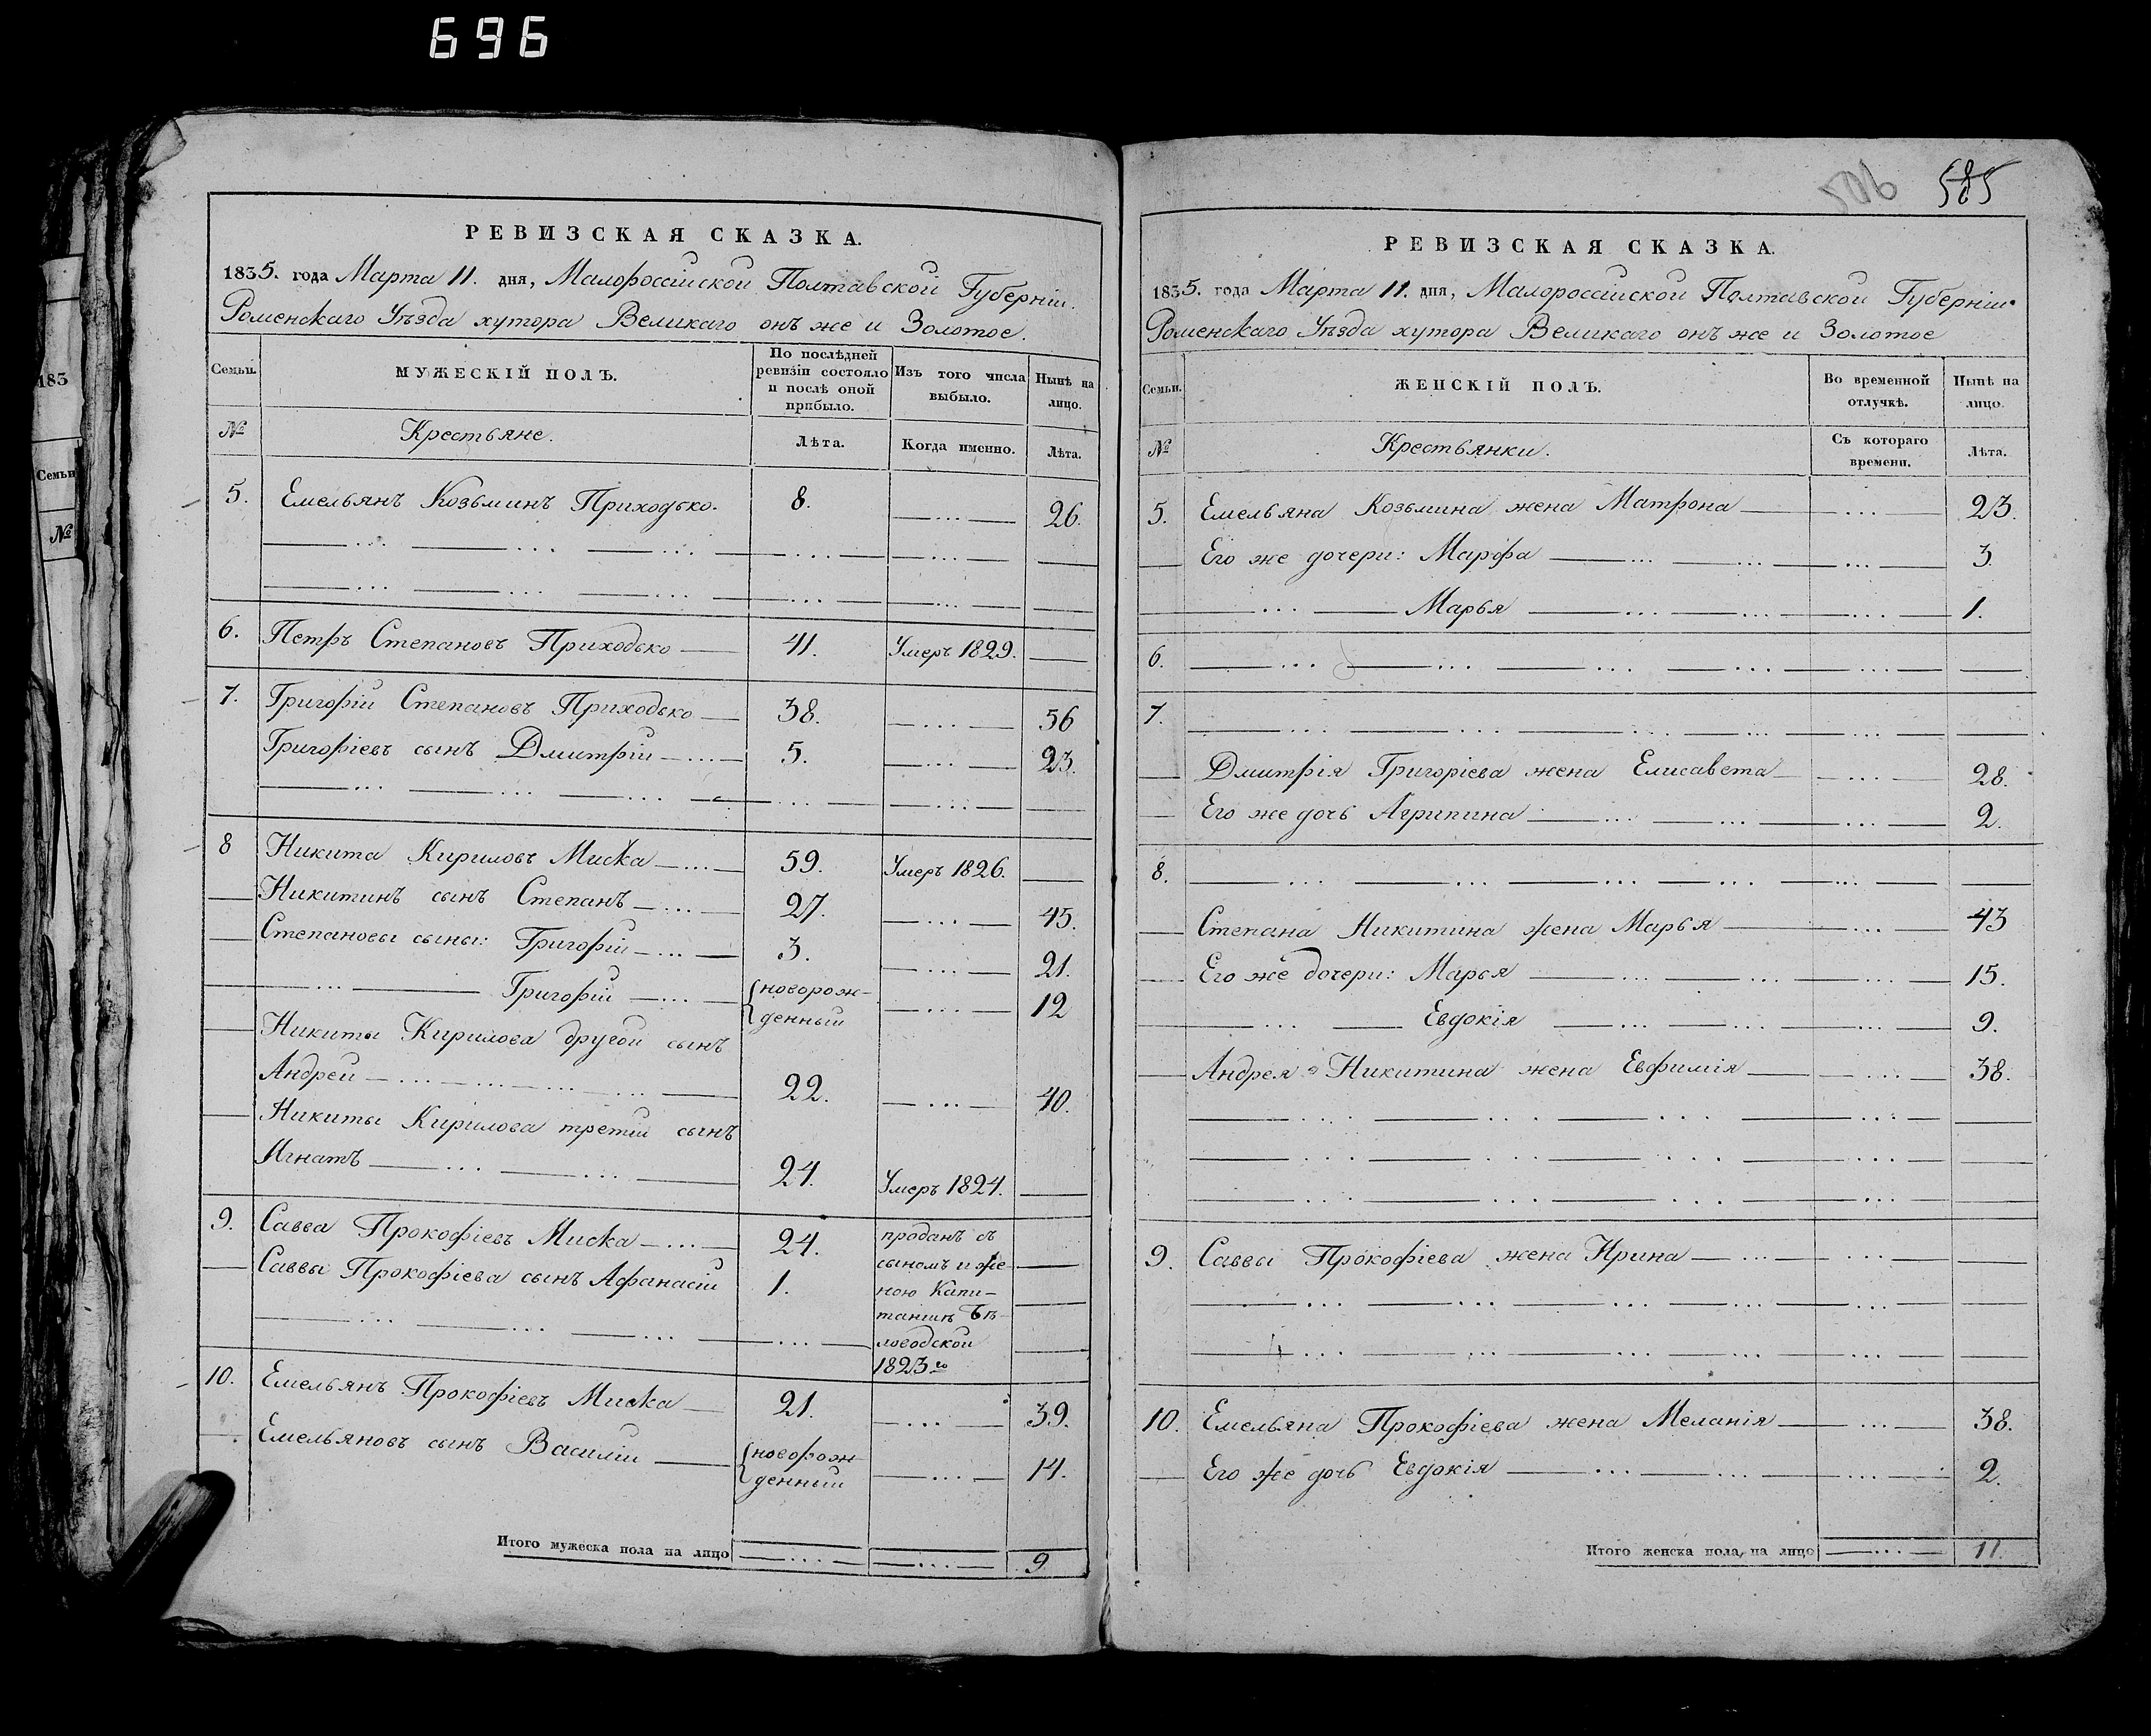 696
183
Семьи
№
РЕВИЗСКАЯ СКАЗКА.
1835. года Марта 11. дня, Малороссійской Полтавской Губерніи.
Роменскаго Уѣзда хутора Великаго онъ же и Золотое.
Семьи. МУЖЕСКІЙ ПОЛЪ. По послѣдней ревизіи состояло и послѣ оной прибыло. Изъ того числа выбыло. Нынѣ на лицо.
№ Крестьяне. Лѣта. Когда именно. Лѣта.
5. Емельянъ Козьминъ Приходько. 8. 26.
6. Петръ Степановъ Приходько 41. Умеръ 1829.
7. Григорій Степановъ Приходько 38. 56
Григоріевъ сынъ Дмитрій 5. 23.
8 Никита Кириловъ Миска 59. Умеръ 1826.
Никитинъ сынъ Степанъ 27. 45.
Степановы сыны: Григорій 3. 21.
Григорій новорож-
денный 12
Никиты Кирилова другой сынъ
Андрей 22. 40.
Никиты Кирилова третій сынъ
Игнатъ 24. Умеръ 1824.
9. Савва Прокофіевъ Миска 24. проданъ съ
сыномъ и же
Саввы Прокофіева сынъ Афанасій 1. ною Капи-
таншѣ Бѣ-
ловодской
1823го
10. Емельянъ Прокофіевъ Миска 21. 39.
Емельяновъ сынъ Василій новорож-
денный 14.
Итого мужеска пола на лицо 9
506 585
РЕВИЗСКАЯ СКАЗКА.
1835. года Марта 11. дня, Малороссійской Полтавской Губерніи.
Роменскаго Уѣзда хутора Великаго онъ же и Золотое
Семьи. ЖЕНСКІЙ ПОЛЪ. Во временной отлучкѣ. Нынѣ на лицо.
№ Крестьянки. Съ котораго времени. Лѣта.
5. Емельяна Козьмина жена Матрона 23.
Его же дочери: Марфа 3.
Марья 1.
6.
7.
Дмитрія Григоріева жена Елисавета 28.
Его же дочь Агрипина 2.
8.
Степана Никитина жена Марья 43
Его же дочери: Марья 15.
Евдокія 9.
Андрея Никитина жена Евфимія 38.
9. Саввы Прокофіева жена Ирина
10. Емельяна Прокофіева жена Меланія 38.
Его же дочь Евдокія 2.
Итого женска пола, на лицо 11.